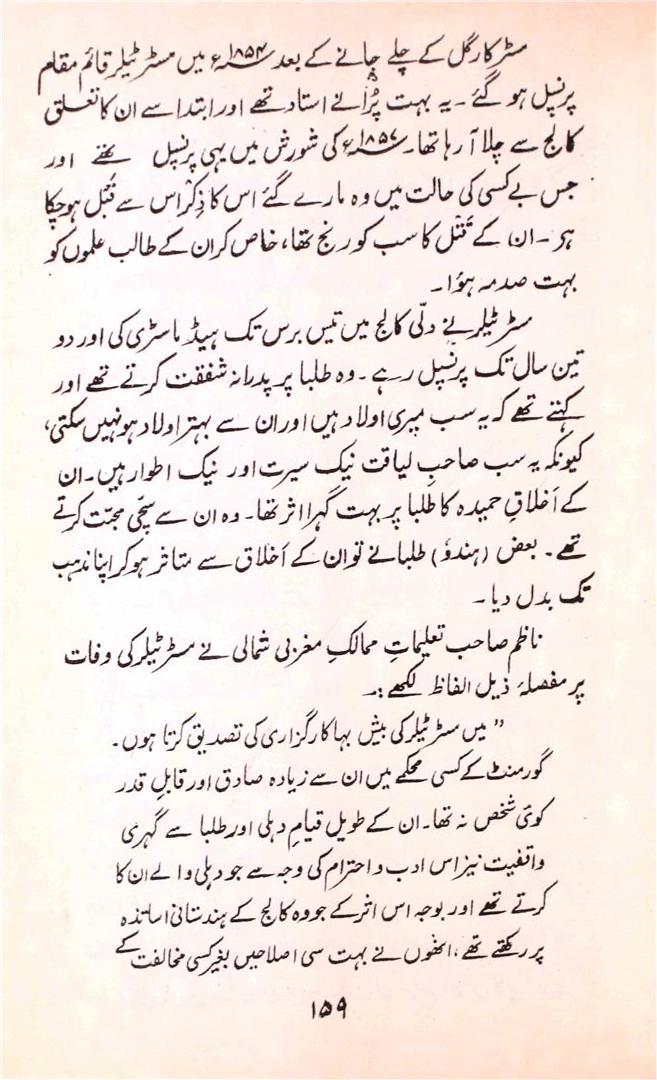 مسٹر کارگل کے چلے جانے کے بعد ۱۸۵۴ء میں مسٹر ٹیلر قائم مقام
پرنسپل ہو گئے۔ یہ بہت پُرانے استاد تھے اور ابتدا سے ان کا تعلق
کالج سے چلا آ رہا تھا۔ ۱۸۵۷ء کی شورش میں یہی پرنسپل تھے اور
جس بے کسی کی حالت میں وہ مارے گئے اس کا ذِکر اس سے قبل ہو چکا
ہے۔ ان کے قتل کا سب کو رنج تھا، خاص کر ان کے طالب علموں کو
بہت صدمہ ہؤا۔
مسٹر ٹیلر نے دلّی کالج میں تیس برس تک ہیڈ ماسٹری کی اور دو
تین سال تک پرنسپل رہے۔ وہ طلبا پر پدرانہ شفقت کرتے تھے اور
کہتے تھے کہ یہ سب میری اولاد ہیں اور ان سے بہتر اولاد ہو نہیں سکتی،
کیونکہ یہ سب صاحبِ لیاقت نیک سیرت اور نیک اطوار ہیں۔ ان
کے اَخلاقِ حمیدہ کا طلبا پر بہت گہرا اثر تھا۔ وہ ان سے سچّی محبّت کرتے
تھے۔ بعض (ہندوٗ) طلبا نے تو ان کے اَخلاق سے متاثر ہو کر اپنا مذہب
تک بدل دیا۔
ناظم صاحب تعلیماتِ ممالکِ مغربی شمالی نے مسٹر ٹیلر کی وفات
پر مفصلۂ ذیل الفاظ لکھے :۔
"میں مسٹر ٹیلر کی بیش بہا کارگزاری کی تصدیق کرتا ہوں۔
گورمنٹ کے کسی محکمے میں ان سے زیادہ صادق اور قابلِ قدر
کوئی شخص نہ تھا۔ ان کے طویل قیامِ دہلی اور طلبا سے گہری
واقفیت نیز اس ادب و احترام کی وجہ سے جو دہلی والے ان کا
کرتے تھے اور بوجہ اس اثر کے جو وہ کالج کے ہندستانی اساتذہ
پر رکھتے تھے، انھوں نے بہت سی اصلاحیں بغیر کسی مخالفت کے
۱۵۹